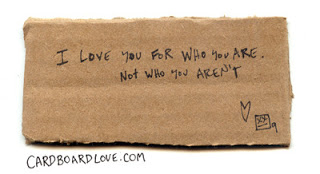 I LOVE YOU FOR WHO YOU ARE.
NOT WHO YOU AREN'T
CARDBOARDLOVE.COM